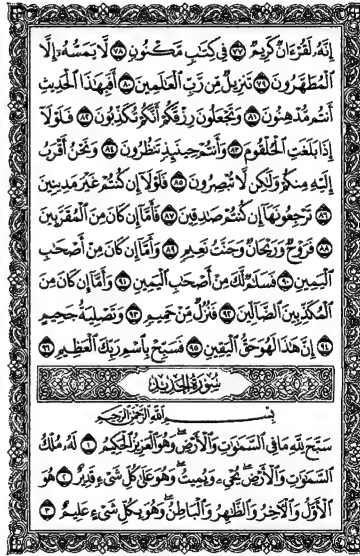 إِنَّهُۥ لَقُرْءَانٌ كَرِيمٌ ٧٧ فِي كِتَٰبٍ مَّكْنُونٍ ٧٨ لَّا يَمَسُّهُۥٓ إِلَّا
ٱلْمُطَهَّرُونَ ٧٩ تَنزِيلٌ مِّن رَّبِّ ٱلْعَٰلَمِينَ ٨٠ أَفَبِهَٰذَا ٱلْحَدِيثِ
أَنتُم مُّدْهِنُونَ ٨١ وَتَجْعَلُونَ رِزْقَكُمْ أَنَّكُمْ تُكَذِّبُونَ ٨٢ فَلَوْلَآ
إِذَا بَلَغَتِ ٱلْحُلْقُومَ ٨٣ وَأَنتُمْ حِينَئِذٍ تَنظُرُونَ ٨٤ وَنَحْنُ أَقْرَبُ
إِلَيْهِ مِنكُمْ وَلَٰكِن لَّا تُبْصِرُونَ ٨٥ فَلَوْلَآ إِن كُنتُمْ غَيْرَ مَدِينِينَ
٨٦ تَرْجِعُونَهَآ إِن كُنتُمْ صَٰدِقِينَ ٨٧ فَأَمَّآ إِن كَانَ مِنَ ٱلْمُقَرَّبِينَ
٨٨ فَرَوْحٌ وَرَيْحَانٌ وَجَنَّتُ نَعِيمٍ ٨٩ وَأَمَّآ إِن كَانَ مِنْ أَصْحَٰبِ
ٱلْيَمِينِ ٩٠ فَسَلَٰمٌ لَّكَ مِنْ أَصْحَٰبِ ٱلْيَمِينِ ٩١ وَأَمَّآ إِن كَانَ مِنَ
ٱلْمُكَذِّبِينَ ٱلضَّآلِّينَ ٩٢ فَنُزُلٌ مِّنْ حَمِيمٍ ٩٣ وَتَصْلِيَةُ جَحِيمٍ
٩٤ إِنَّ هَٰذَا لَهُوَ حَقُّ ٱلْيَقِينِ ٩٥ فَسَبِّحْ بِٱسْمِ رَبِّكَ ٱلْعَظِيمِ ٩٦
سُورَةُ الحَدِيد
بِسْمِ ٱللَّهِ ٱلرَّحْمَٰنِ ٱلرَّحِيمِ
سَبَّحَ لِلَّهِ مَا فِي ٱلسَّمَٰوَٰتِ وَٱلْأَرْضِ وَهُوَ ٱلْعَزِيزُ ٱلْحَكِيمُ ١ لَهُۥ مُلْكُ
ٱلسَّمَٰوَٰتِ وَٱلْأَرْضِ يُحْيِۦ وَيُمِيتُ وَهُوَ عَلَىٰ كُلِّ شَيْءٍ قَدِيرٌ ٢ هُوَ
ٱلْأَوَّلُ وَٱلْءَاخِرُ وَٱلظَّٰهِرُ وَٱلْبَاطِنُ وَهُوَ بِكُلِّ شَيْءٍ عَلِيمٌ ٣